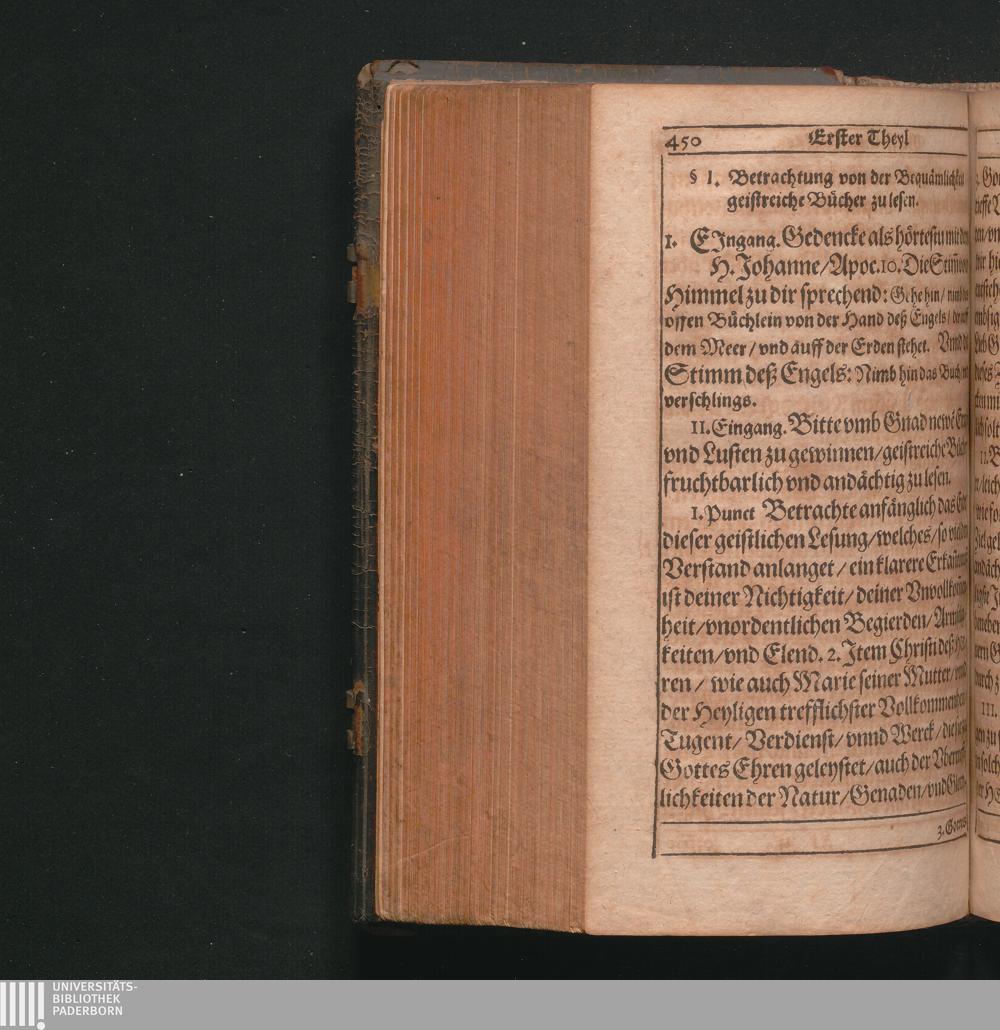 450 Erster Theyl
§ 1. Betrachtung von der Bequämlichkeit
geistreiche Bücher zu lesen.
I. EIngang. Gedencke als hörtestu mit dem
H. Johanne/Apoc.10. Die Stim̃ von
Himmel zu dir sprechend: Gehe hin/ nimb das
offen Büchlein von der Hand deß Engels/ der auff
dem Meer/ vnd auff der Erden stehet. Vnnd die
Stimm deß Engels: Nimb hin das Buch
verschlings.
II. Eingang. Bitte vmb Gnad newe
vnd Lusten zu gewinnen/geistreiche Bücher
fruchtbarlich vnd andächtig zu lesen.
I. Punct Betrachte anfänglich das
dieser geistlichen Lesung/welches/so viel den
Verstand anlanget/ ein klarere
ist deiner Nichtigkeit/ deiner
heit/vnordentlichen Begierden/
keiten/vnd Elend. 2. Item Christi deß
ren/ wie auch Marie seiner Mutter/
der Heyligen trefflichster Vollkommenheit
Tugent/ Verdienst/ vnnd Werck/
Gottes Ehren geleystet/auch der
lichkeiten der Natur/Genaden/vnd
3. Gottes
UNIVERSITÄTS-
BIBLIOTHEK
PADERBORN